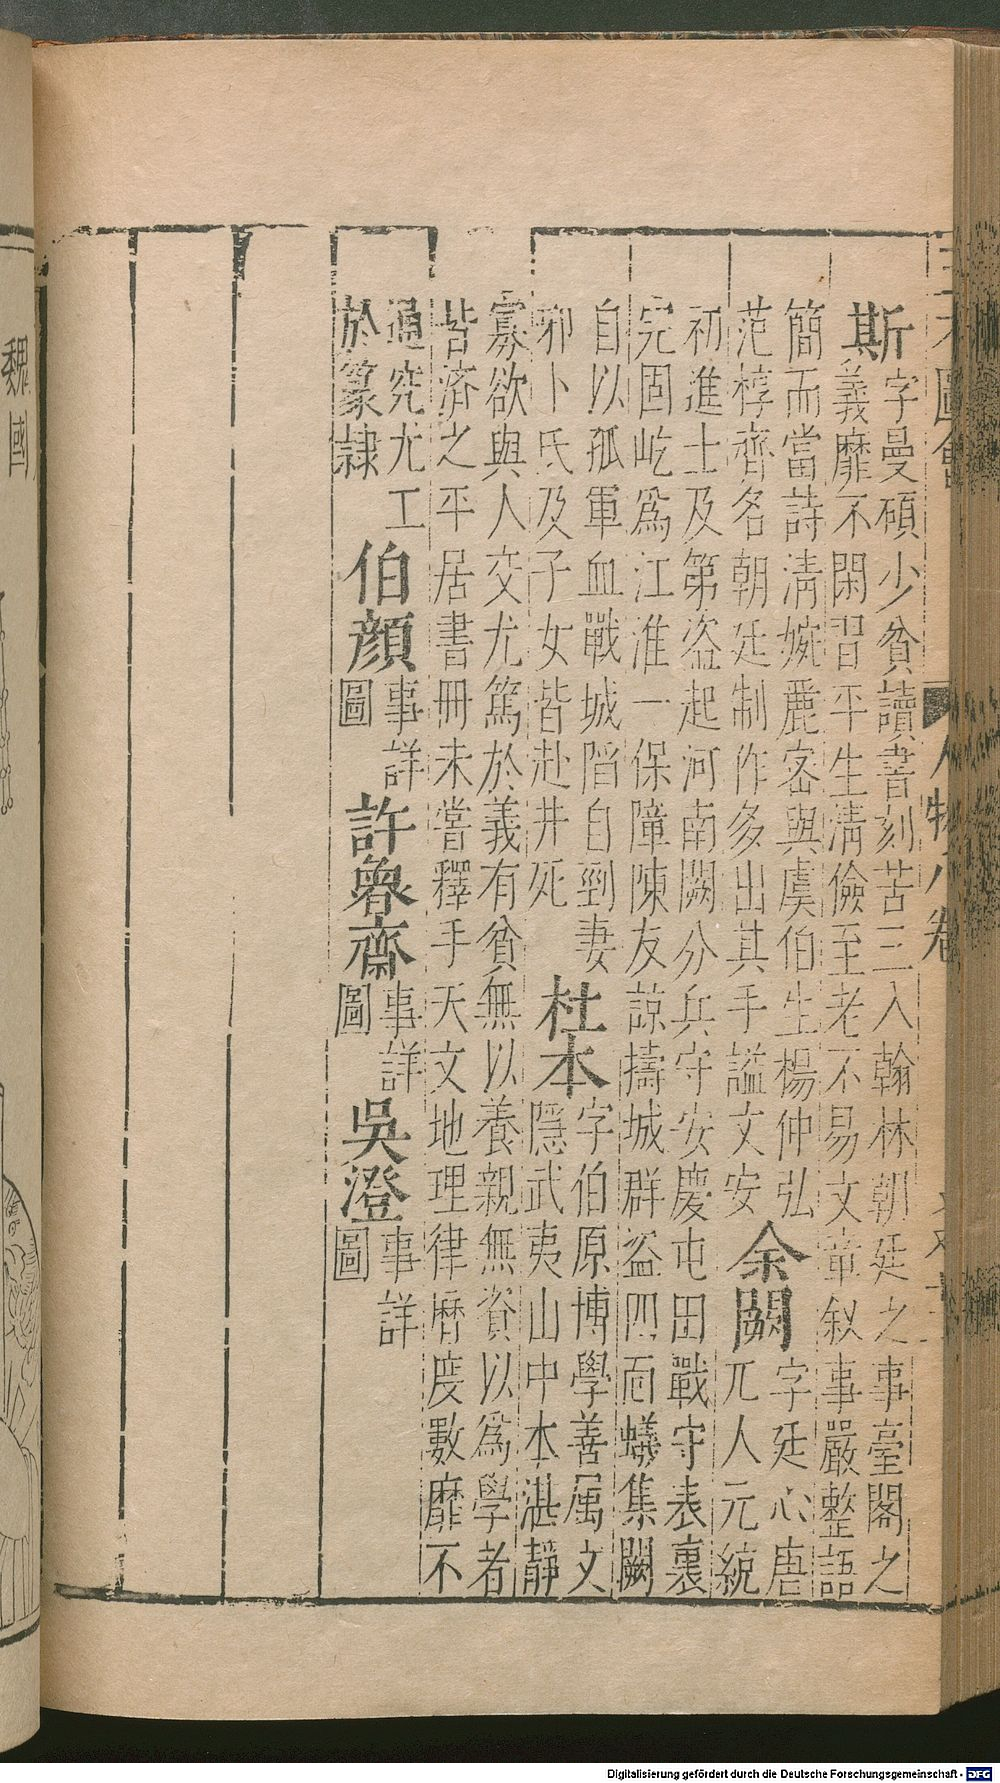 三才圖會 人物八卷
斯
字曼碩少貧讀書刻苦三入翰林朝廷之事臺閣之
義靡不閑習平生清儉至老不易文章叙事嚴整語
簡而當詩清婉麗密與虞伯生楊仲弘
范梈齊名朝廷制作多出其手謚文安
余闕
字廷心唐
兀人元統
初進士及第盜起河南闕分兵守安慶屯田戰守表裏
完固屹為江淮一保障陳友諒擣城群盜四面蟻集闕
自以孤軍血戰城陷自剄妻
邪卜氏及子女皆赴井死
杜本
字伯原博學善属文
隱武夷山中本湛靜
寡欲與人交尤篤於義有貧無以養親無資以為學者
皆濟之平居書冊未嘗釋手天文地理律曆度數靡不
通究尤工
於篆隸
伯顏
事詳
圖
許魯齋
事詳
圖
吳澄
事詳
圖
魏國
Digitalisierung gefördert durch die Deutsche Forschungsgemeinschaft - DFG